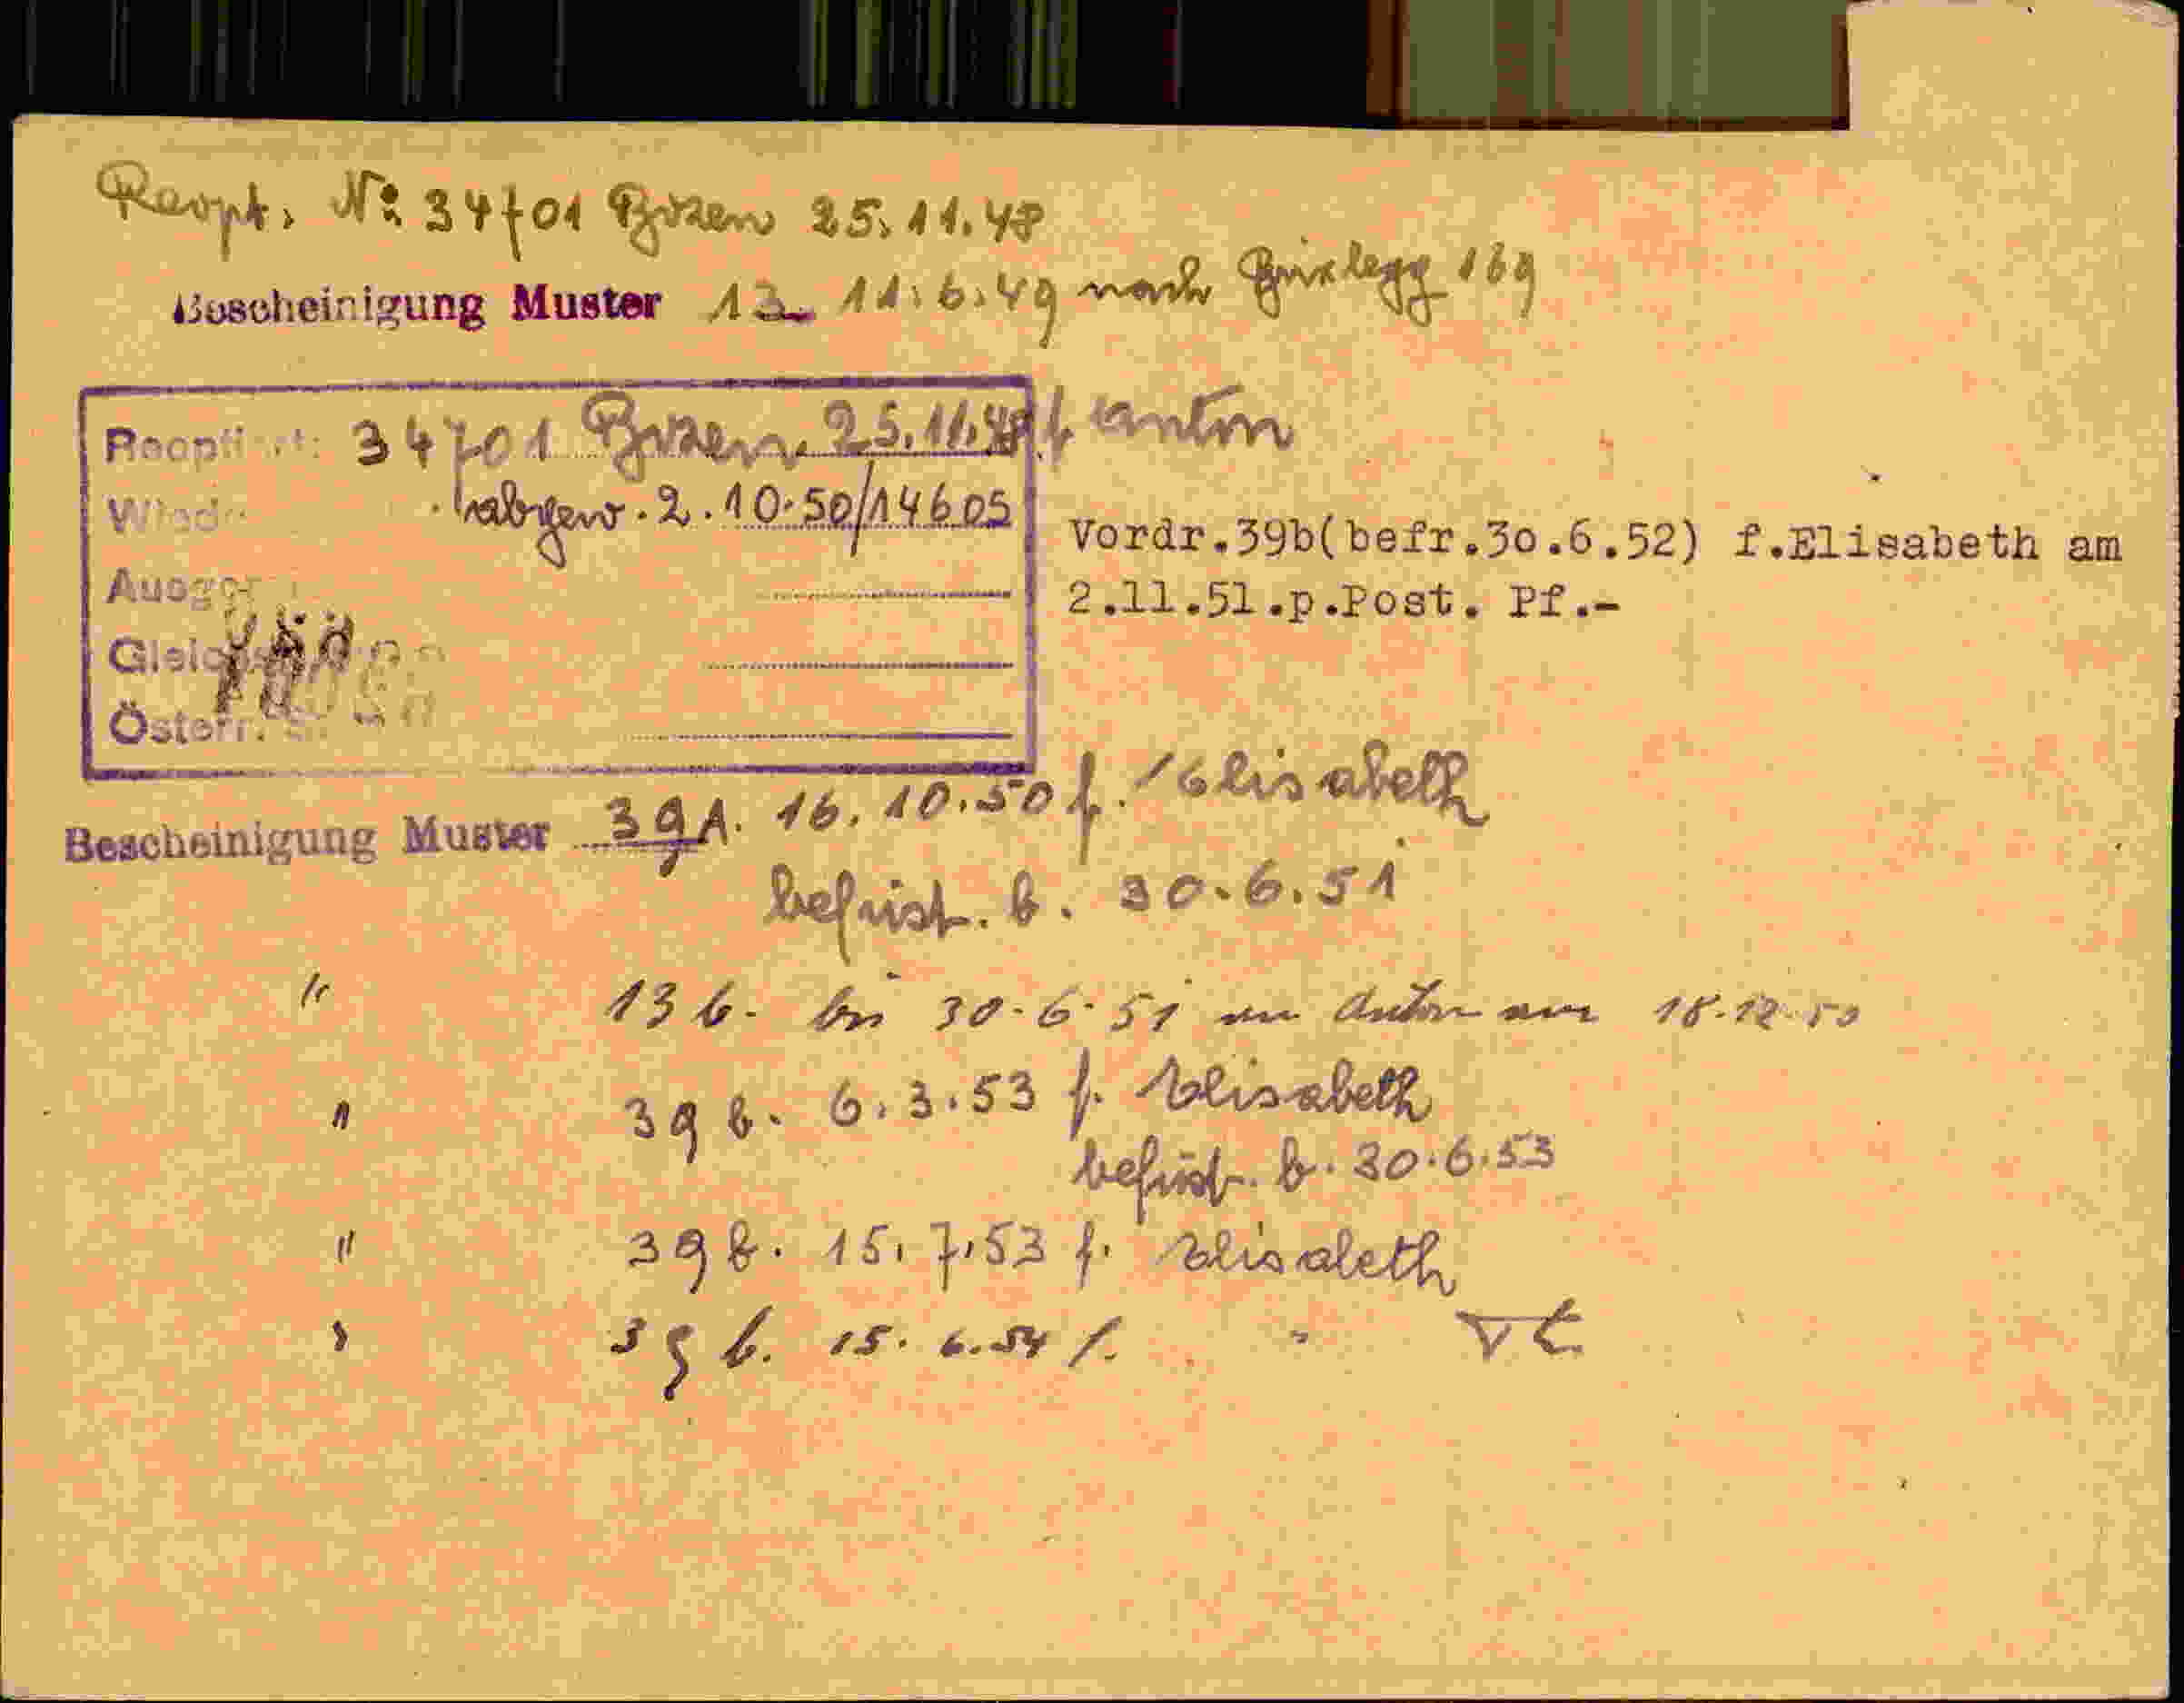 Reopt. № 34701 Bozen 25.11.48
Bescheinigung Muster 13 11.6.49 nach Brixlegg 169
Reoptiert: 34701 Bozen 25.11.48 f. Anton
abgew. 2.10.50/14605
Vordr.39b(befr.30.6.52) f.Elisabeth am
2.11.51.p.Post. Pf.-
Österr.
Bescheinigung Muster 39A. 16.10.50 f. Elisabeth
befrist. b. 30.6.51
" 13b. bis 30.6.51 an Anton am 18.12.50
" 39b. 6.3.53 f. Elisabeth
befrist. b. 30.6.53
" 39b. 15.7.53 f. Elisabeth
" 39b. 15.6.54 f. "